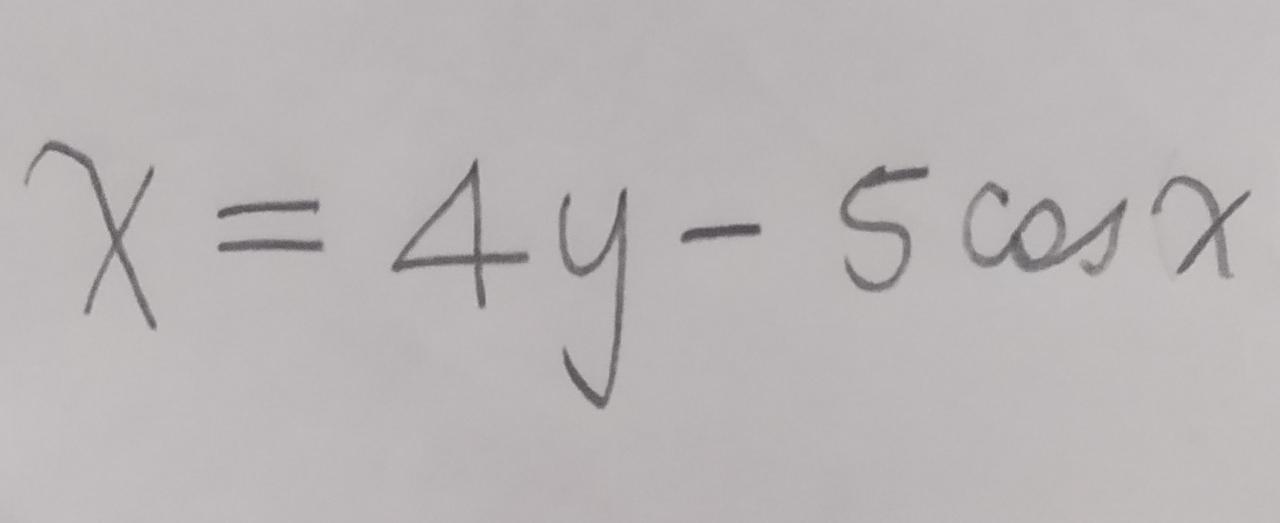 x = 4y - 5 cos x